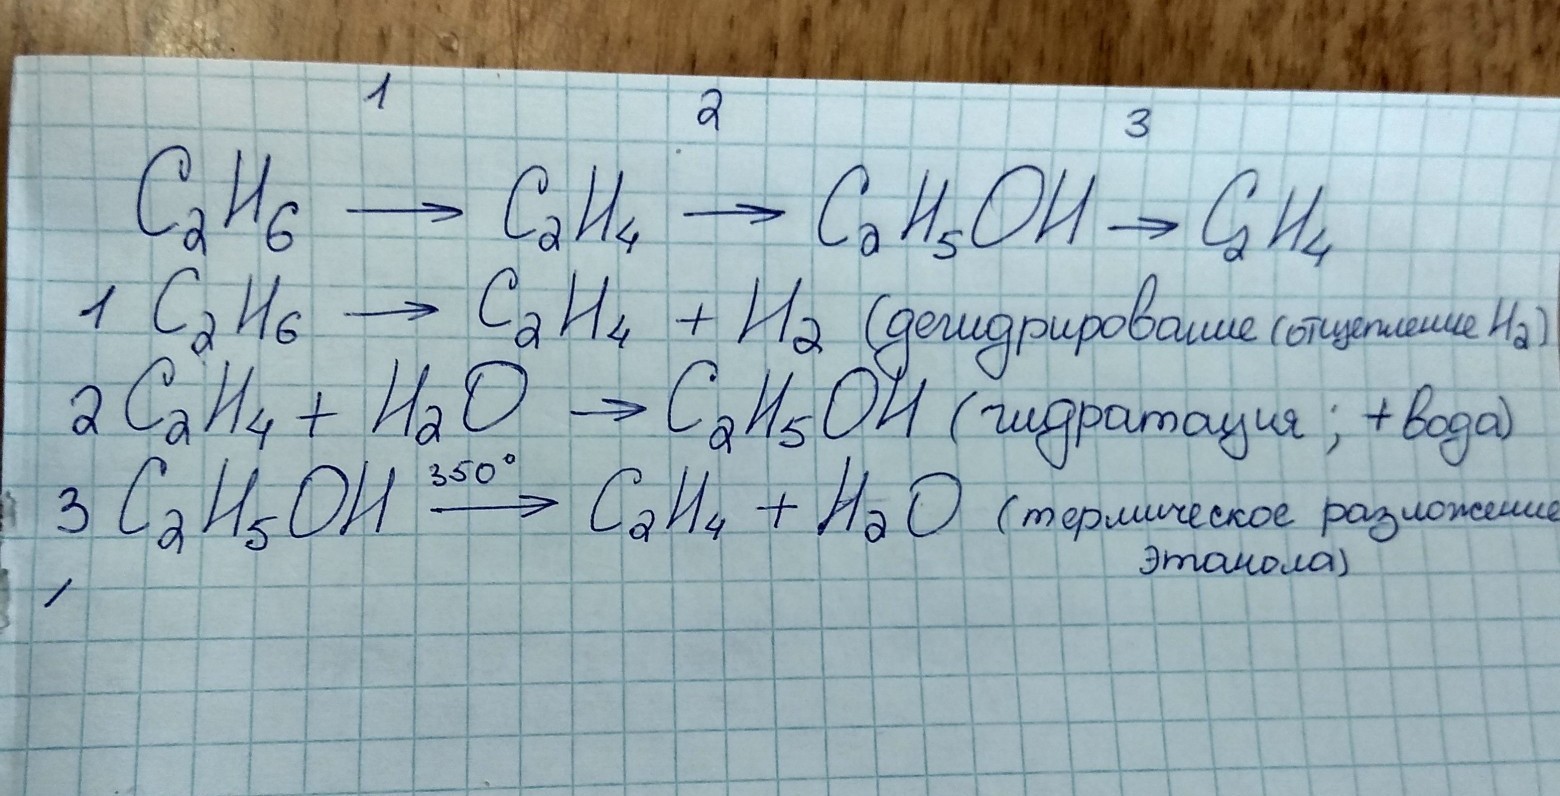 1 2 3
C₂H₆ → C₂H₄ → C₂H₅OH → C₂H₄
1 C₂H₆ → C₂H₄ + H₂ (дегидрирование (отщепление H₂)
2 C₂H₄ + H₂O → C₂H₅OH (гидратация; + вода)
350°
3 C₂H₅OH → C₂H₄ + H₂O (термическое разложение
этанола)